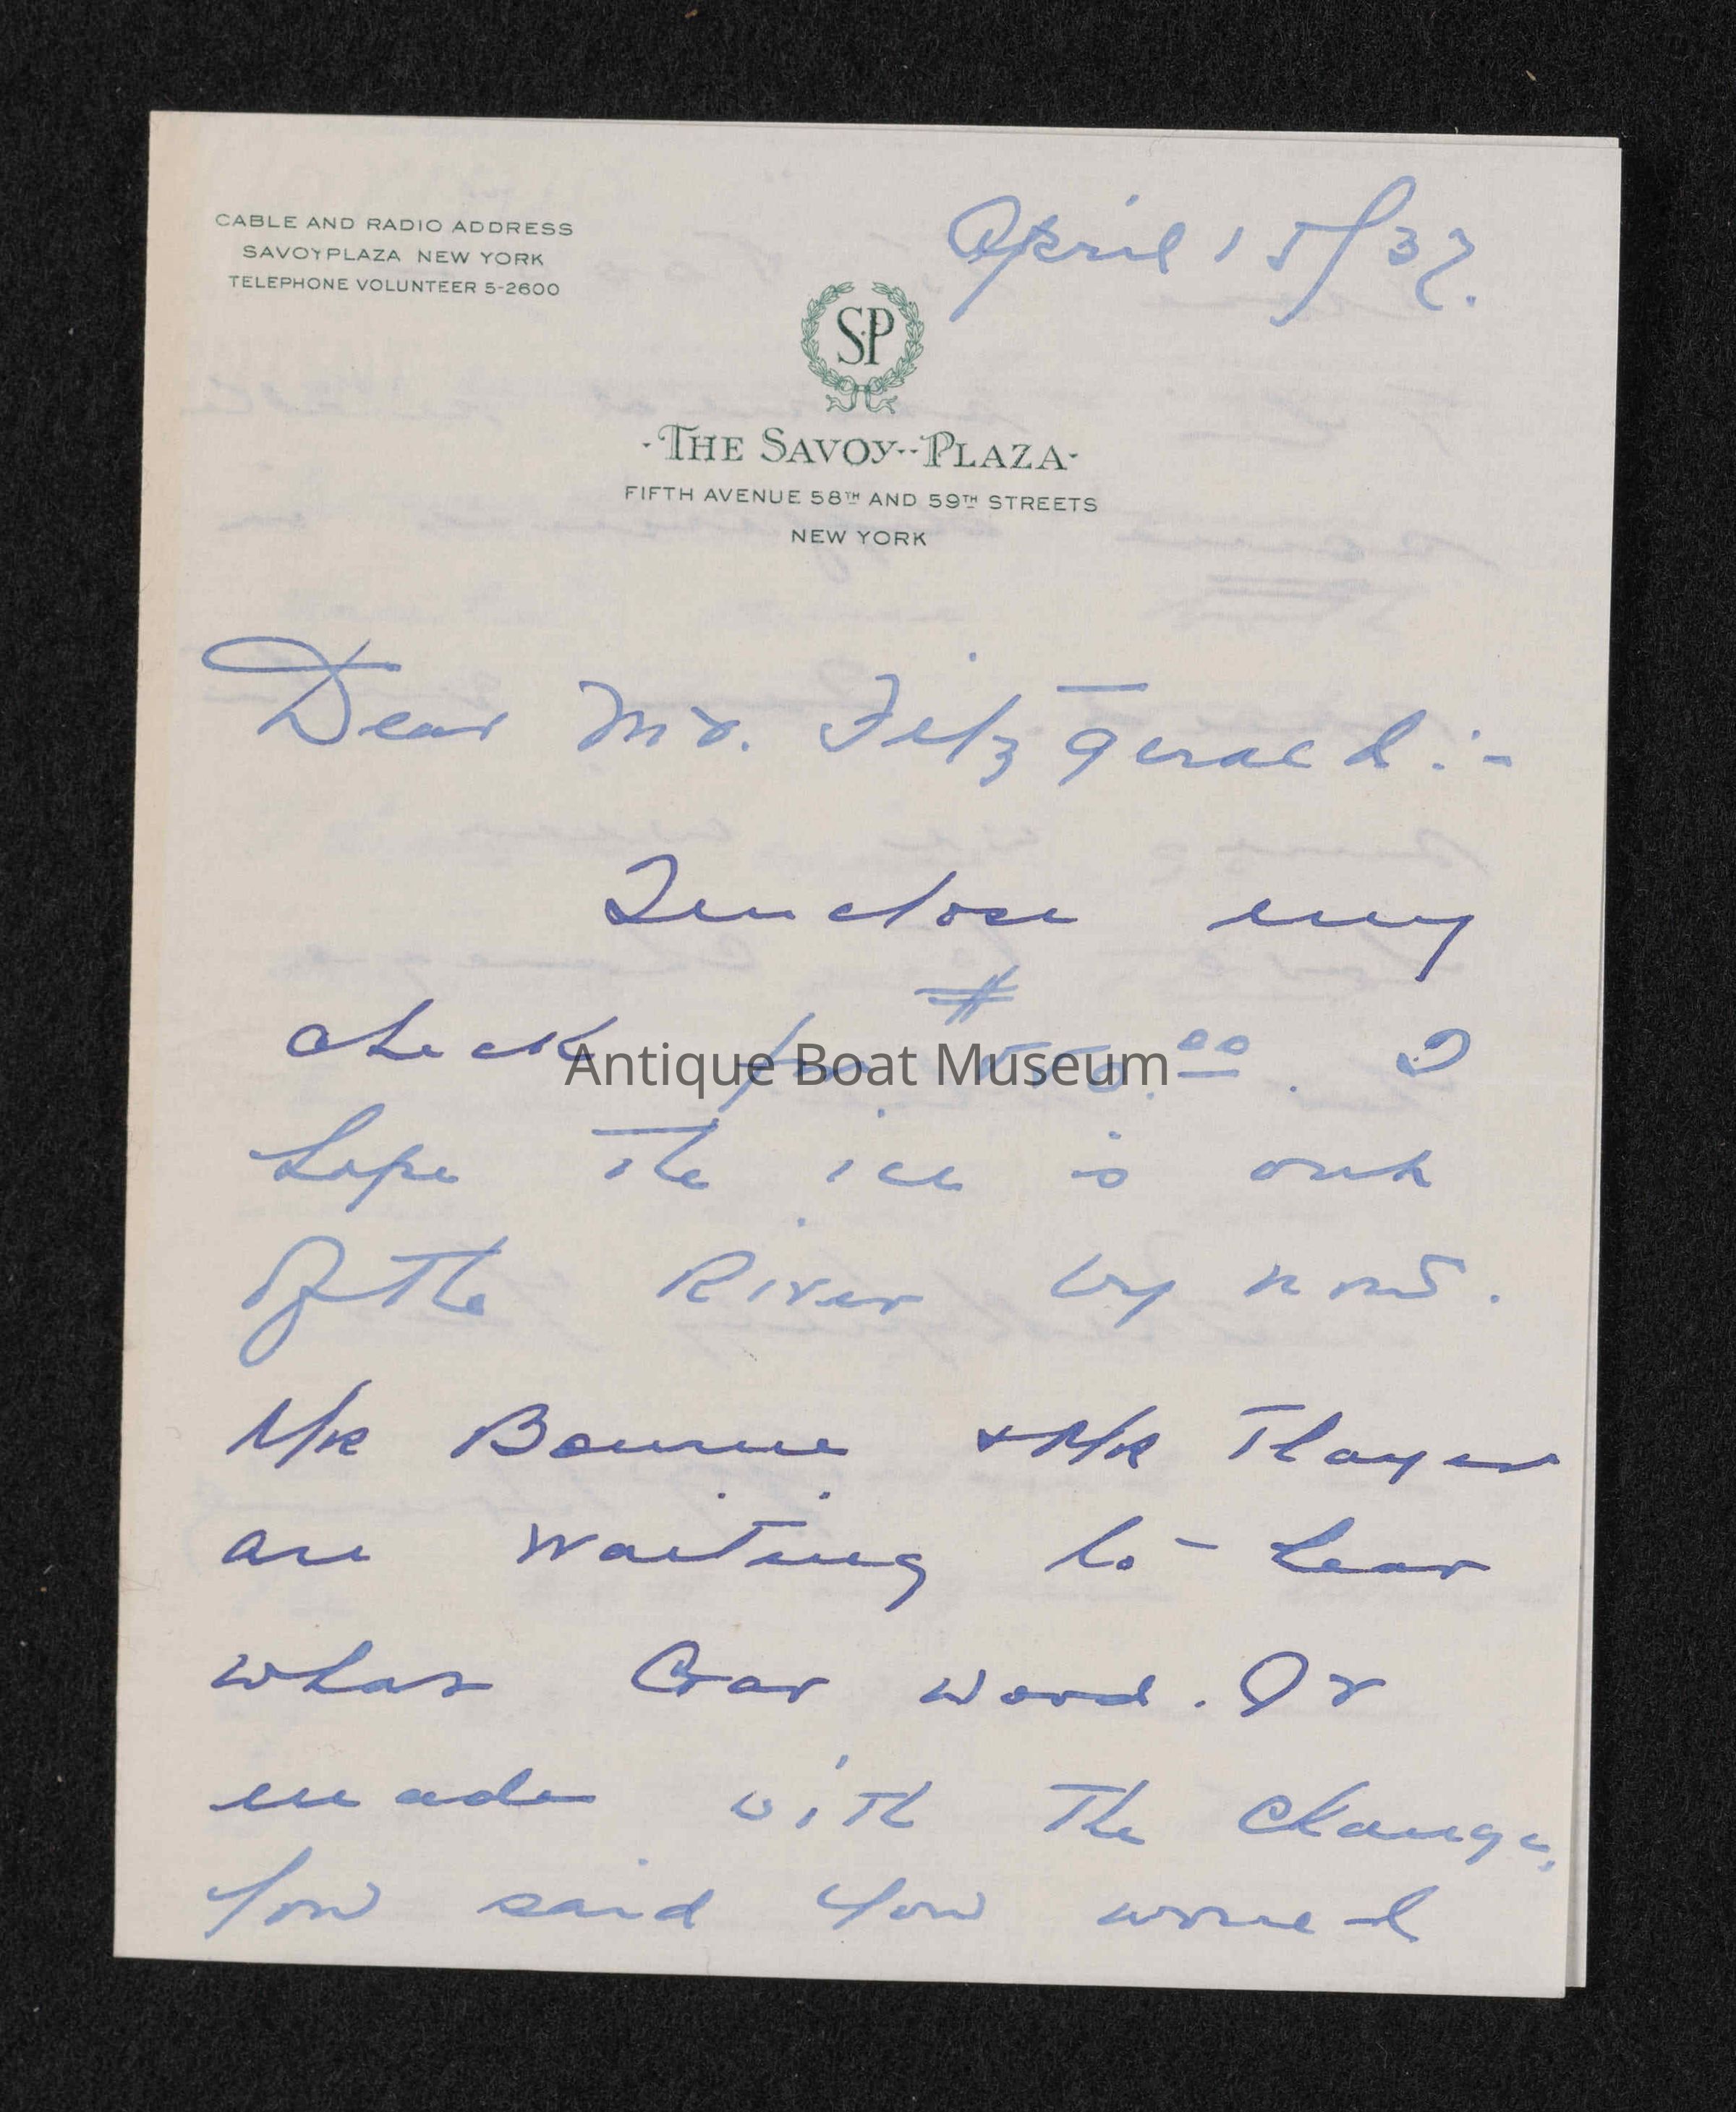 CABLE AND RADIO ADDRESS
SAVOYPLAZA NEW YORK
TELEPHONE VOLUNTEER 5-2600
April 15/37.
SP
·THE SAVOY--PLAZA·
FIFTH AVENUE 58TH AND 59TH STREETS
NEW YORK
Dear Mr. Fitzgerald:-
I enclose my
check for $550.00. I
hope the ice is out
of the River by now.
Mr Bourne + Mr Thayer
are waiting to hear
what Gar Wood. Jr
made with the change,
You said you would
Antique Boat Museum